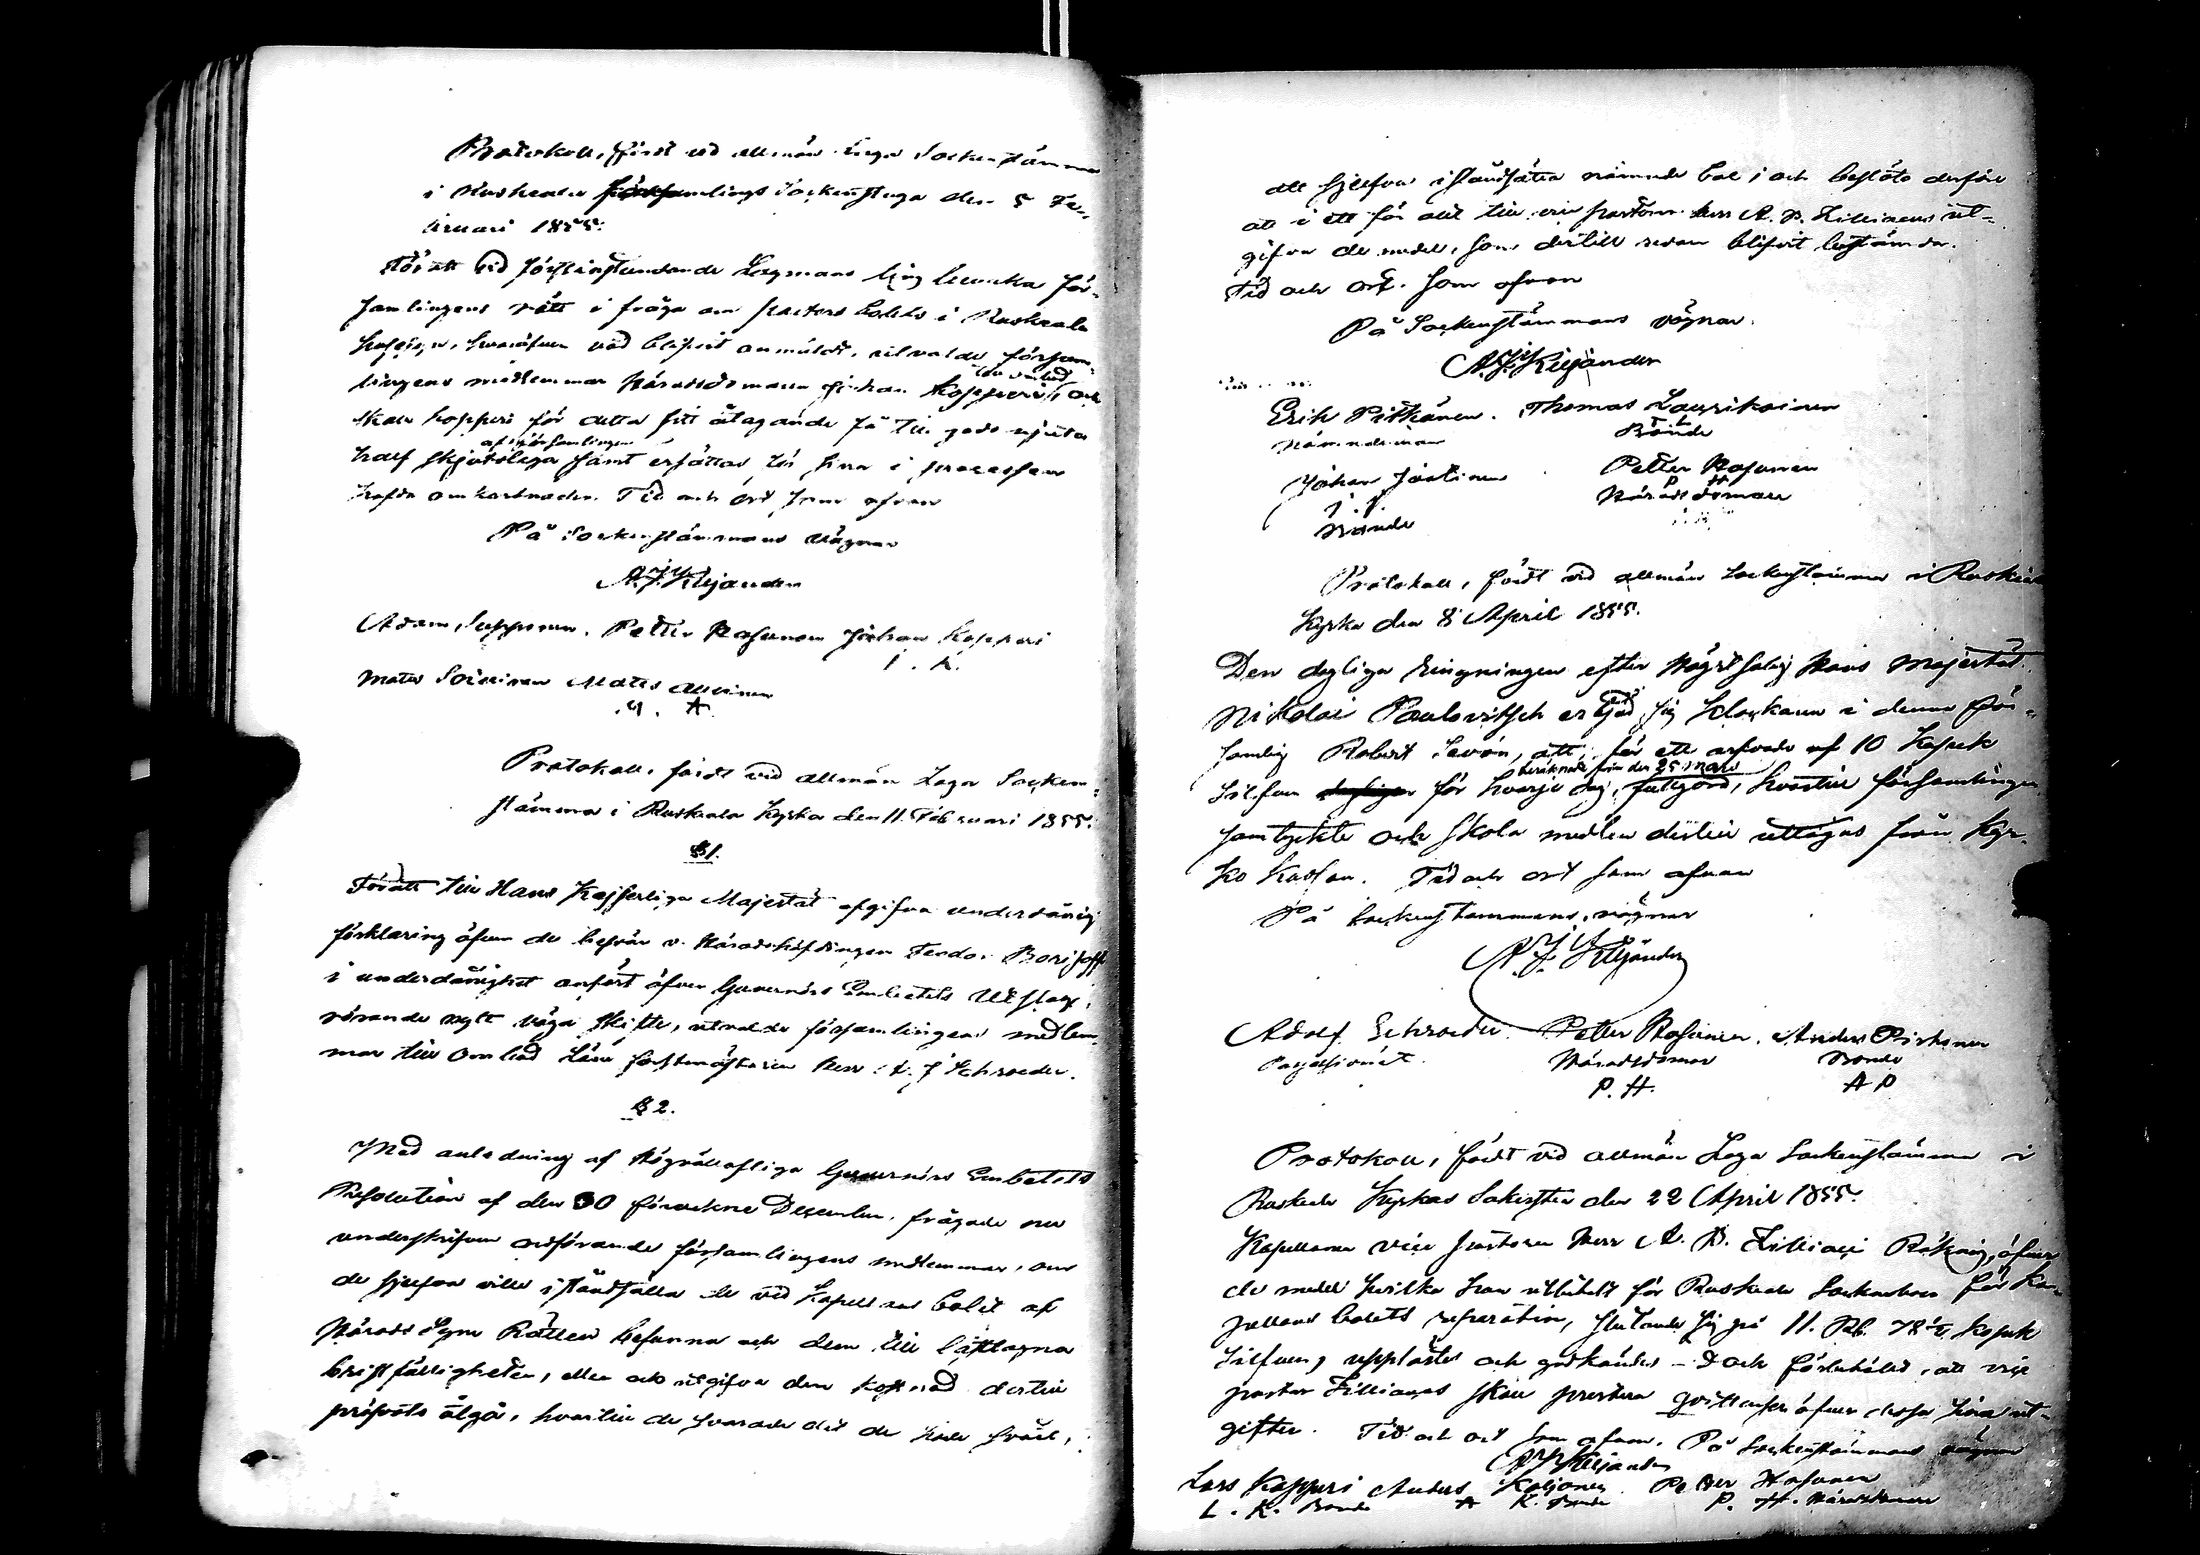 Protokoll, fördt vid allmän laga Sockenstämma
i Ruskeala församlings Sockenstuga den 5 Fe-
bruari 1855.
För att vid förstinstundande Lagmans ting bevaka för-
samlingens rätt i fråga om pastors bolets i Ruskeala
hvaröfver vad blifvit anmäldt, utvalde försam-
lingens medlemmar Häradsdomaren Johan Kopperi till ombud och
skall Kopperi för detta sitt åtagande få till godo njuta
half skjutslega af församlingen samt ersättas för sina i processen
hafda omkostnader. Tid och ort som ofvan
På Sockenstämmans vägnar
A. J. Kiljander
Adam Supponen. Petter Hasunen Johan Kopperi
I. K.
Mats Soininen Mats
M. A.
Protokoll, fördt vid allmän Laga Socken-
stämma i Ruskeala Kyrka den 11 Februari 1855.
§ 1.
För att till Hans Kejserliga Majestät afgifva underdånig
förklaring öfver de besvär v. Häradshöfdingen Feodor Borisoff
i underdånighet anfört öfver Guvernörs Embetets Utslag,
rörande nytt väga skifte, utvalde församlingens medlem-
mar till ombud Läns forstmästaren Herr A. F. Schroeder.
§ 2.
Med anledning af Högvällofliga Guvernörs Embetets
Resolution af den 30 förvekne December, frågade nu
underskrifven ordförande församlingens medlemmar, om
de sjelfva ville iståndsätta de vid Kapellans bolet af
Härads Syne Rätten befunna och dem till last lagna
bristfälligheter, eller ock utgifva den kostnad dertill
pröfvats åtgå, hvartill de svarade det de hade svårt,
att sjelfva iståndsätta nämnde bol, och beslöto derföre
att i ett för allt till vice pastorn Herr A. B. Zilliacus ut-
gifva de medel, som dertill redan blifvit bestämda.
Tid och ort som ofvan
På Sockenstämmans vägnar.
A. J. Kiljander
Erik Pitkänen. Thomas Laurikainen
Nämndeman Bonde
Johan Jantinen Petter Hasunen
J. J. P H
Bonde Häradsdomare
Protokoll, fördt vid allmän Sockenstämma i Ruskeala
Kyrka den 8 April 1855.
Den dagliga ringningen efter Högstsalig Hans Majestät
Nikolai Paulovitsch erbjöd sig Klockaren i denna För-
samling Robert Savén, att, för ett arfvode af 10 Kopek
Silfver dagligen för hvarje dag, beräknade från den 25 Mars fullgöra, hvartill församlingen
samtyckte och skola medlen dertill uttagas från Kyr-
ko Kassan. Tid och ort som ofvan
På Sockenstämmans vägnar
A. J. Kiljander
Adolf Schroeder. Petter Hasunen. Anders Pirhonen
Possessionat. Häradsdomare Bonde
P. H. A P
Protokoll, fördt vid allmän Laga Sockenstämma i
Ruskeala Kyrkas Sakristia den 22 April 1855.
Kapellanen vice pastoren Herr A. B. Zilliaci Räkning, öfver
de medel hvilka han utbetalt för Ruskeala Sockenbor för Ka-
pellans bolets reparation, slutande sig på 11. Rb. 78½ Kopek
Silfver, upplästes och godkändes – dock förbehölls, att vice
pastor Zilliacus skall prestera qvittenser öfver dessa sina ut-
gifter. Tid och ort som ofvan. På Sockenstämmans vägnar
A. J. Kiljander
Lars Kopperi Anders Koljonen Petter Hasunen
L. K. Bonde A K. Bonde P. H. Häradsdomare